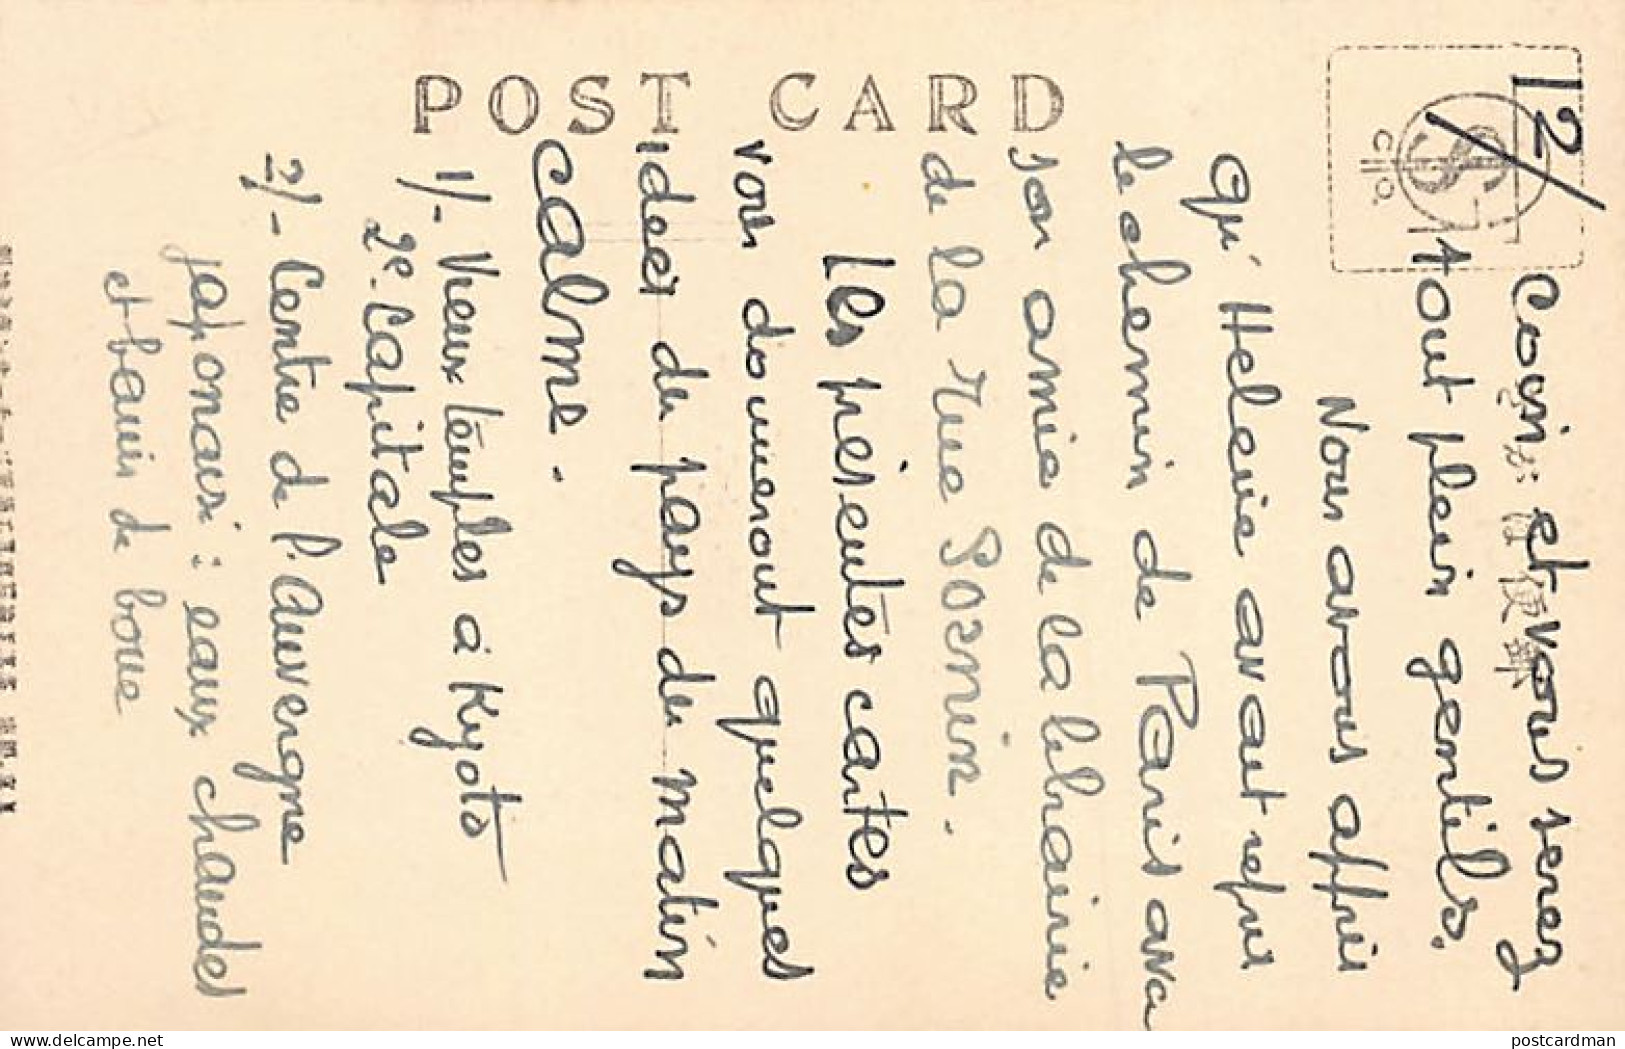 POST CARD
12/
Cosi et vous serez
tout plein gentils.
Nous avons appris
qu'Helene avant repris
le chemin de Paris avec
son amie de la librairie
de la Rue
Les présentes cartes
vous donneront quelques
idées du pays du matin
calme.
1/- Vieux temples à Kyoto
2e Capitale
2/- Centre de l'Auvergne
japonais : eaux chaudes
et bains de boue
postcardman